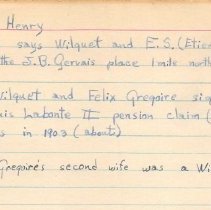 Henry
says Wilquet and E.S. (Etier
the J.B. Gervais place 1 mile north
Wilquet and Felix Gregoire sig
is Labonte II pension claim (
s in 1903 (about)
Gregoire's second wife was a Wi